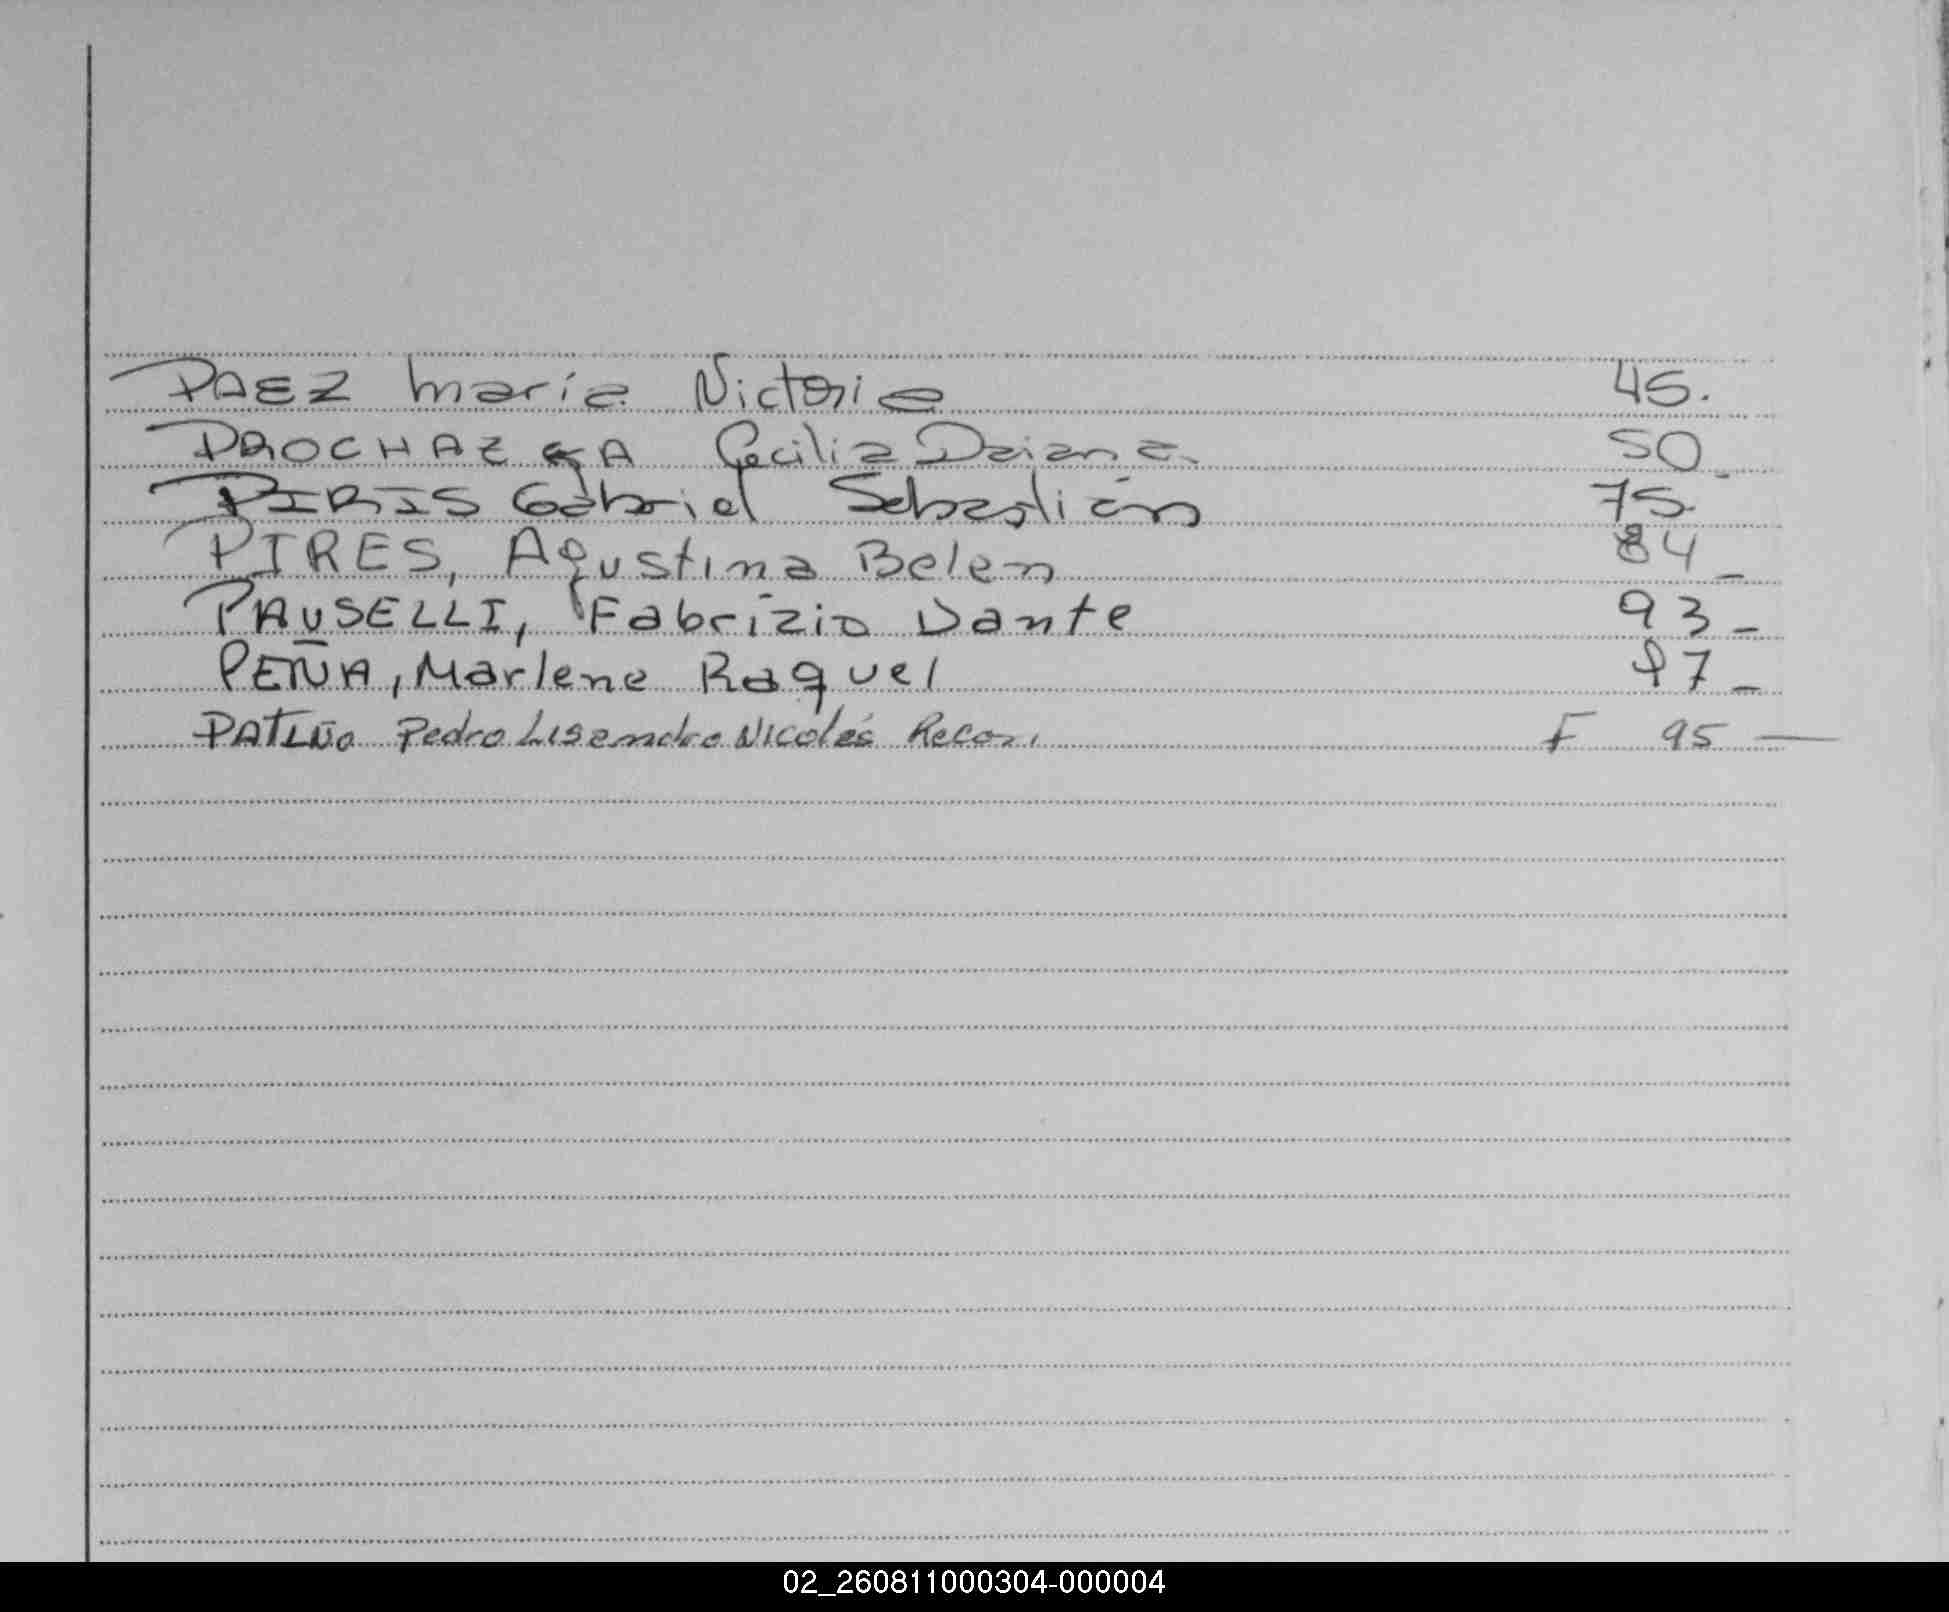 PAEZ María Victoria 45.
PROCHAZKA Cecilia Daiana. 50_
PIRIS Gabriel Sebastián 75.
PIRES, Agustina Belen 84_
PAUSELLI, Fabrizio Dante 93_
PEÑA, Marlene Raquel 97_
PATIÑO Pedro Lisandro Nicolás F 95 —
02_260811000304-000004